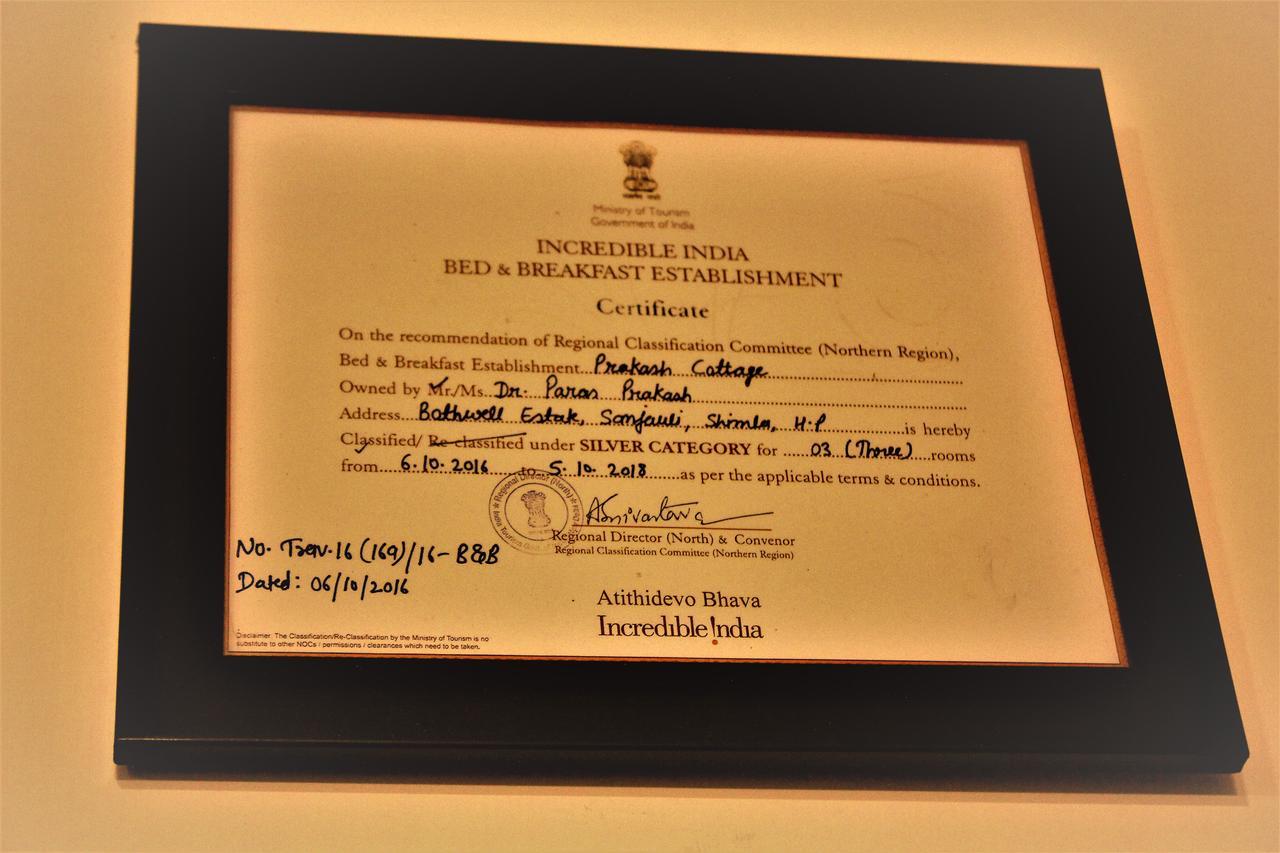 Ministry of Tourism
Government of India
INCREDIBLE INDIA
BED & BREAKFAST ESTABLISHMENT
Certificate
On the recommendation of Regional Classification Committee (Northern Region),
Bed & Breakfast Establishment...Prakash Cottage
Owned by Mr./Ms...Dr. Paras Prakash
Address...Bothwell Estate, Sanjauli, Shimla, H.P...is hereby
Classified/ Re-classified under SILVER CATEGORY for ......03 (Three)...rooms
from...6.10.2016......to...5.10.2018......as per the applicable terms & conditions.
Regional Director (North)
Regional Director (North) & Convenor
Regional Classification Committee (Northern Region)
No. Tserv.16 (169)/16-B&B
Dated: 06/10/2016
Atithidevo Bhava
Incredible !ndia
Disclaimer: The Classification/Re-Classification by the Ministry of Tourism is no
substitute to other NOCs / permissions / clearances which need to be taken.